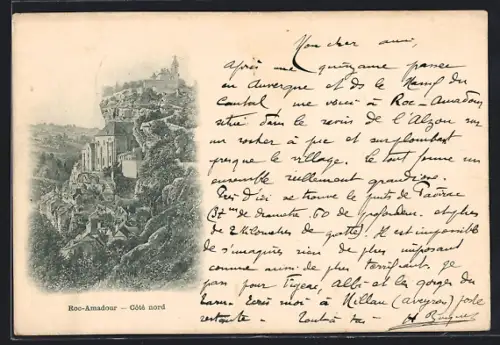 Mon cher ami,
Après une quinzaine passée
en Auvergne et ds le Massif du
Cantal, me voici à Roc-Amadour
situé dans le ravin de l'Alzou sur
un rocher à pic et surplombant
presque le village. Le tout forme un
ensemble réellement grandiose.
Près d'ici se trouve le puits de Padirac
de diamètre 60 de profondeur et plus
de 2 kilomètres de grotte). Il est impossible
de s'imaginer rien de plus imposant
comme aussi de plus terrifiant. Je
pars pour Figeac, Albi et les gorges du
Tarn. Ecris moi à Millau (Aveyron) poste
restante. Tout à toi
Roc-Amadour — Côté nord